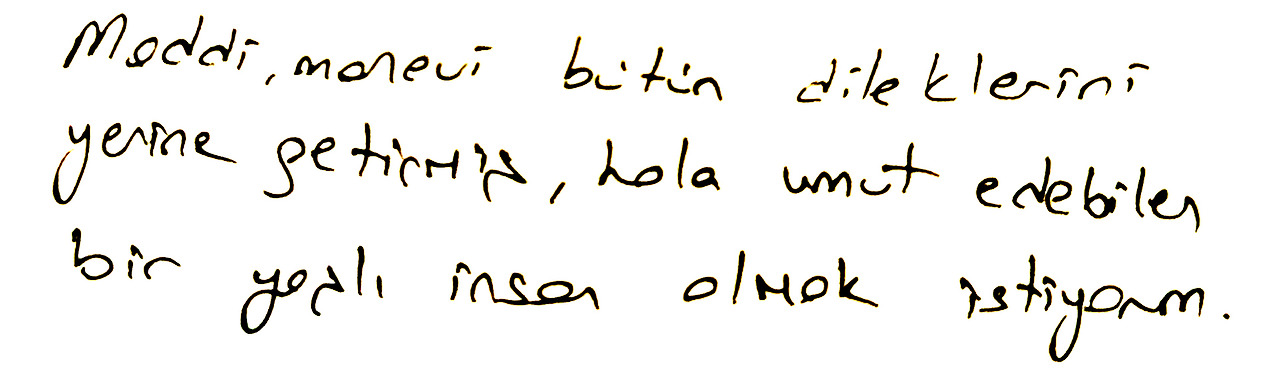 Maddi, manevi bütün dileklerini
yerine getirmiş, hala umut edebilen
bir yaşlı insan olmak istiyorum.